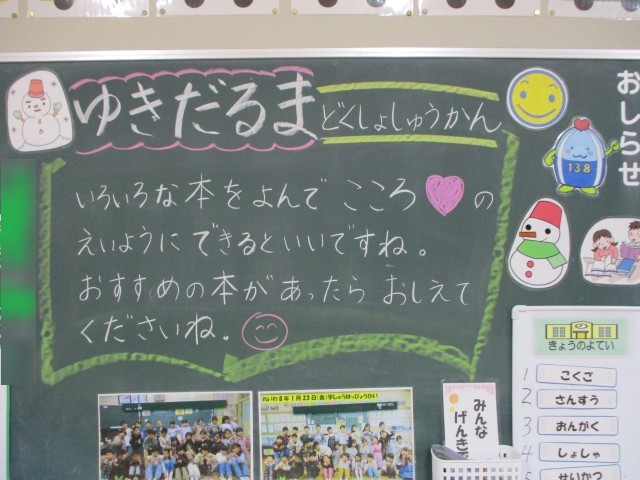 ゆきだるま どくしょしゅうかん
いろいろな本をよんで こころ♥の
えいようにできるといいですね。
おすすめの本があったら おしえて
くださいね。
おしらせ
138
きょうのよてい
1 こくご
2 さんすう
3 おんがく
4 しょしゃ
5 せいかつ
みんな
げんき